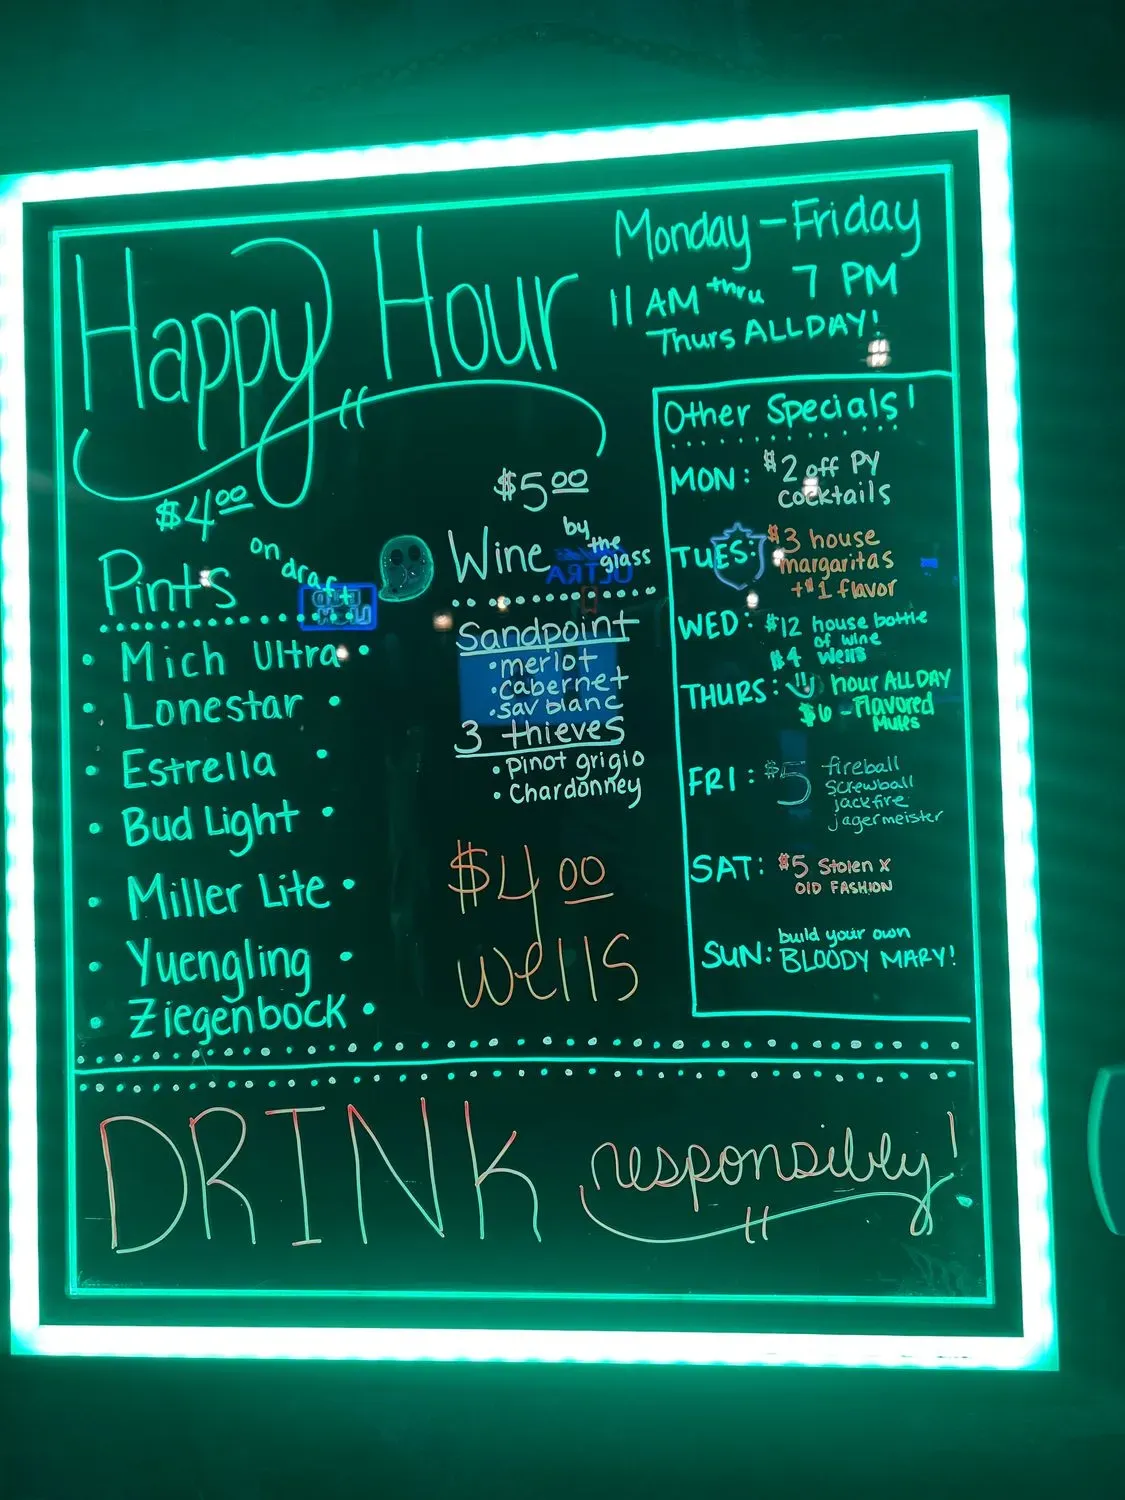 Happy Hour
Monday - Friday
11 AM thru 7 PM
Thurs ALL DAY!
$4.00
Pints on draft
• Mich Ultra •
• Lonestar •
• Estrella •
• Bud Light •
• Miller Lite •
• Yuengling •
• Ziegenbock •
$5.00
Wine by the glass
Sandpoint
• merlot
• cabernet
• sav blanc
3 thieves
• Pinot grigio
• Chardonney
$4.00
Wells
Other Specials!
MON: $2 off PY
cocktails
TUES: $3 house
margaritas
+$1 flavor
WED: $12 house bottle
of wine
$4 wells
THURS: hour ALL DAY
$6 - Flavored
Mules
FRI: $5 fireball
screwball
jackfire
jagermeister
SAT: $5 Stolen X
OLD FASHION
SUN: build your own
BLOODY MARY!
DRINK responsibly!
ULTRA